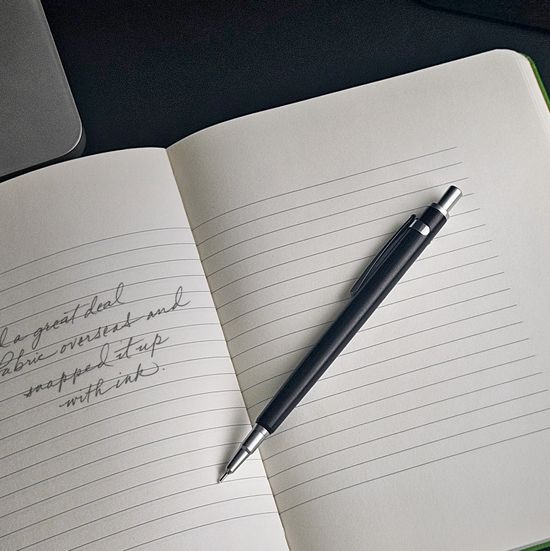 a great deal
fabric overseas and
snapped it up
with ink.